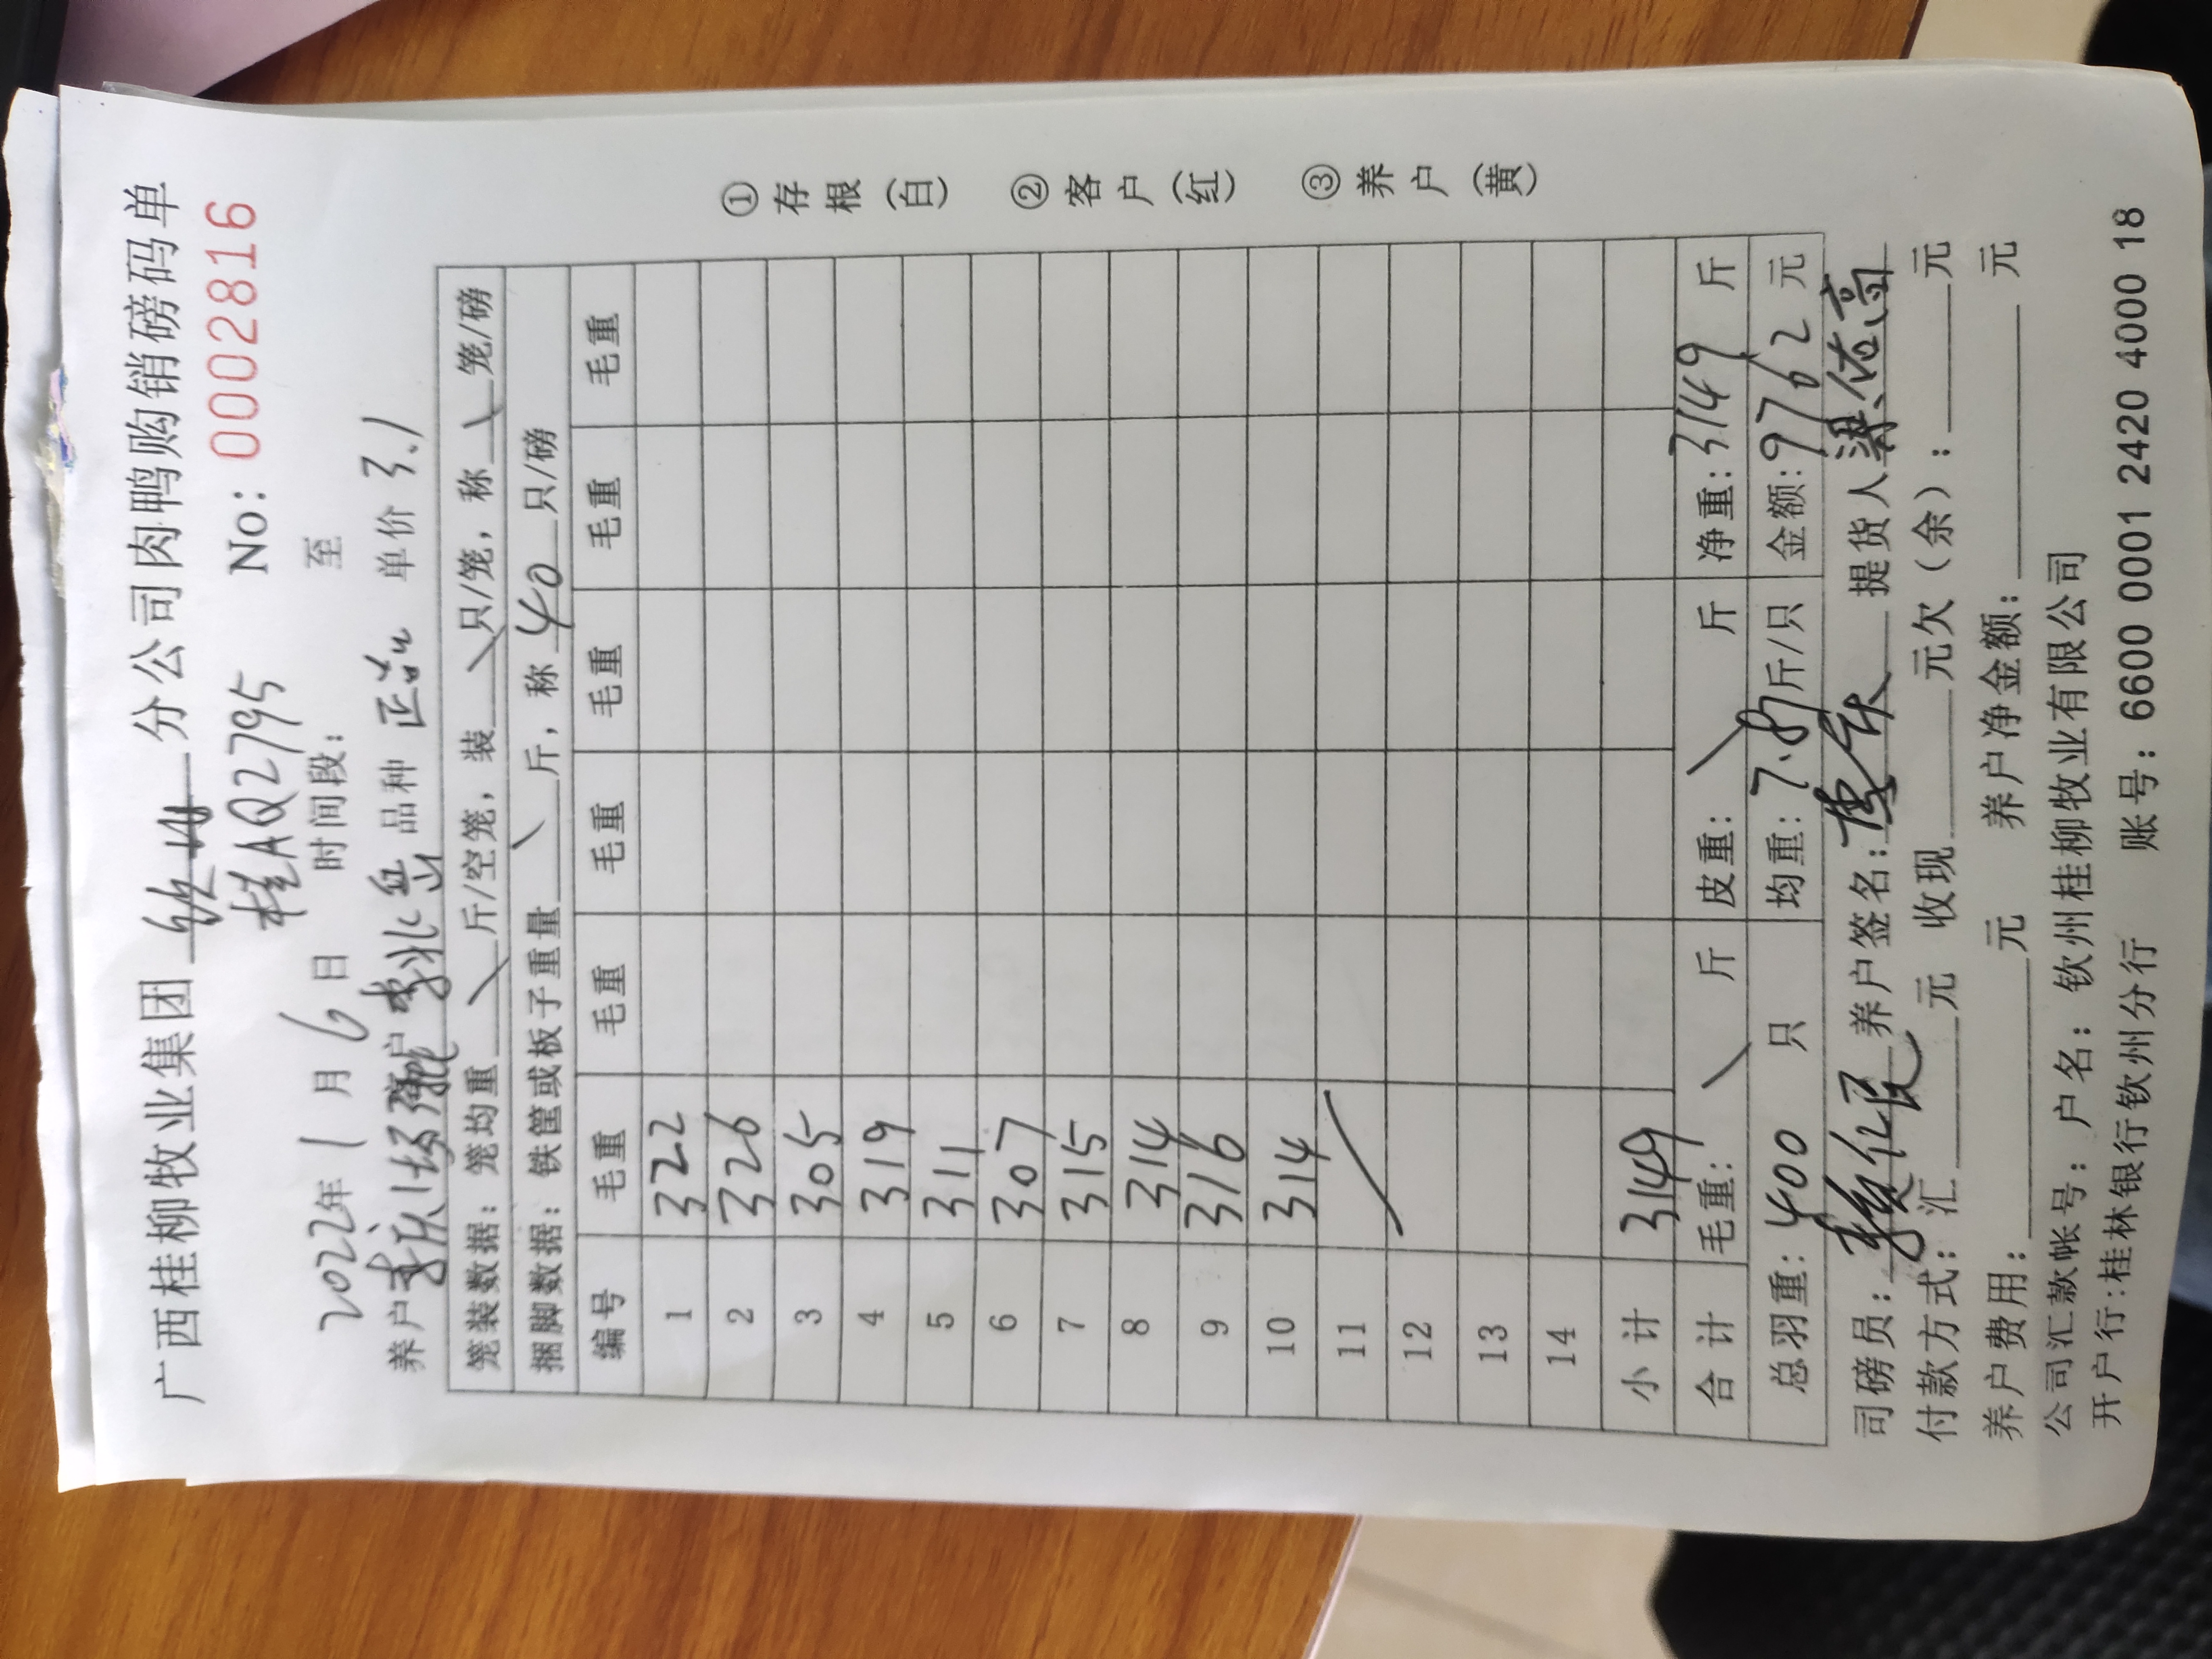 广西桂柳牧业集团 分公司肉鸭购销磅码单
桂AQ2795 No: 0002816
2022年 1月 6日 时间段: 至
养户 客户 品种 单价 3.1
笼装数据: 笼均重 \ 斤/空笼, 装 \ 只/笼, 称 \ 笼/磅
捆脚数据: 铁筐或板子重量 \ 斤, 称 40 只/磅
编号 毛重 毛重 毛重 毛重 毛重 毛重
1 322
2 326
3 305
4 319
5 311
6 307
7 315
8 314
9 316
10 314
11
12
13
14
小计 3149
合计 毛重: \ 斤 皮重: \ 斤 净重: 3149 斤
总羽重: 400 只 均重: 7.87斤/只 金额: 9762 元
司磅员: 养户签名: 提货人
付款方式: 汇 元 收现 元欠(余): 元
养户费用: 元 养户净金额: 元
公司汇款帐号: 户名: 钦州桂柳牧业有限公司
开户行:桂林银行钦州分行 账号: 6600 0001 2420 4000 18
①存根(白) ②客户(红) ③养户(黄)